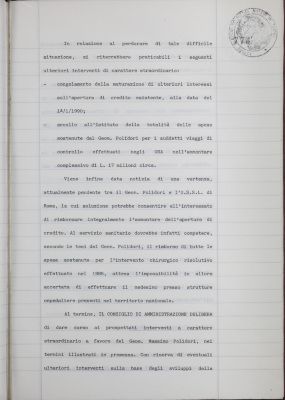 In relazione al perdurare di tale difficile
situazione, si riterrebbero praticabili i seguenti
ulteriori interventi di carattere straordinario:
- congelamento della maturazione di ulteriori interessi
sull'apertura di credito esistente, alla data del
14/1/1990;
- accollo all'Istituto della totalità delle spese
sostenute dal Geom. Polidori per i suddetti viaggi di
controllo effettuati negli USA nell'ammontare
complessivo di L. 17 milioni circa.
Viene infine data notizia di una vertenza,
attualmente pendente tra il Geom. Polidori e l'U.S.L. di
Roma, la cui soluzione potrebbe consentire all'interessato
di rimborsare integralmente l'ammontare dell'apertura di
credito. Al servizio sanitario dovrebbe infatti competere,
secondo le tesi del Geom. Polidori, il rimborso di tutte le
spese sostenute per l'intervento chirurgico risolutivo
effettuato nel 1985, attesa l'impossibilità in allora
accertata di effettuare il medesimo presso strutture
ospedaliere presenti nel territorio nazionale.
Al termine, IL CONSIGLIO DI AMMINISTRAZIONE DELIBERA
di dare corso ai prospettati interventi a carattere
straordinario a favore del Geom. Massimo Polidori, nei
termini illustrati in premessa. Con riserva di eventuali
ulteriori interventi sulla base degli sviluppi della